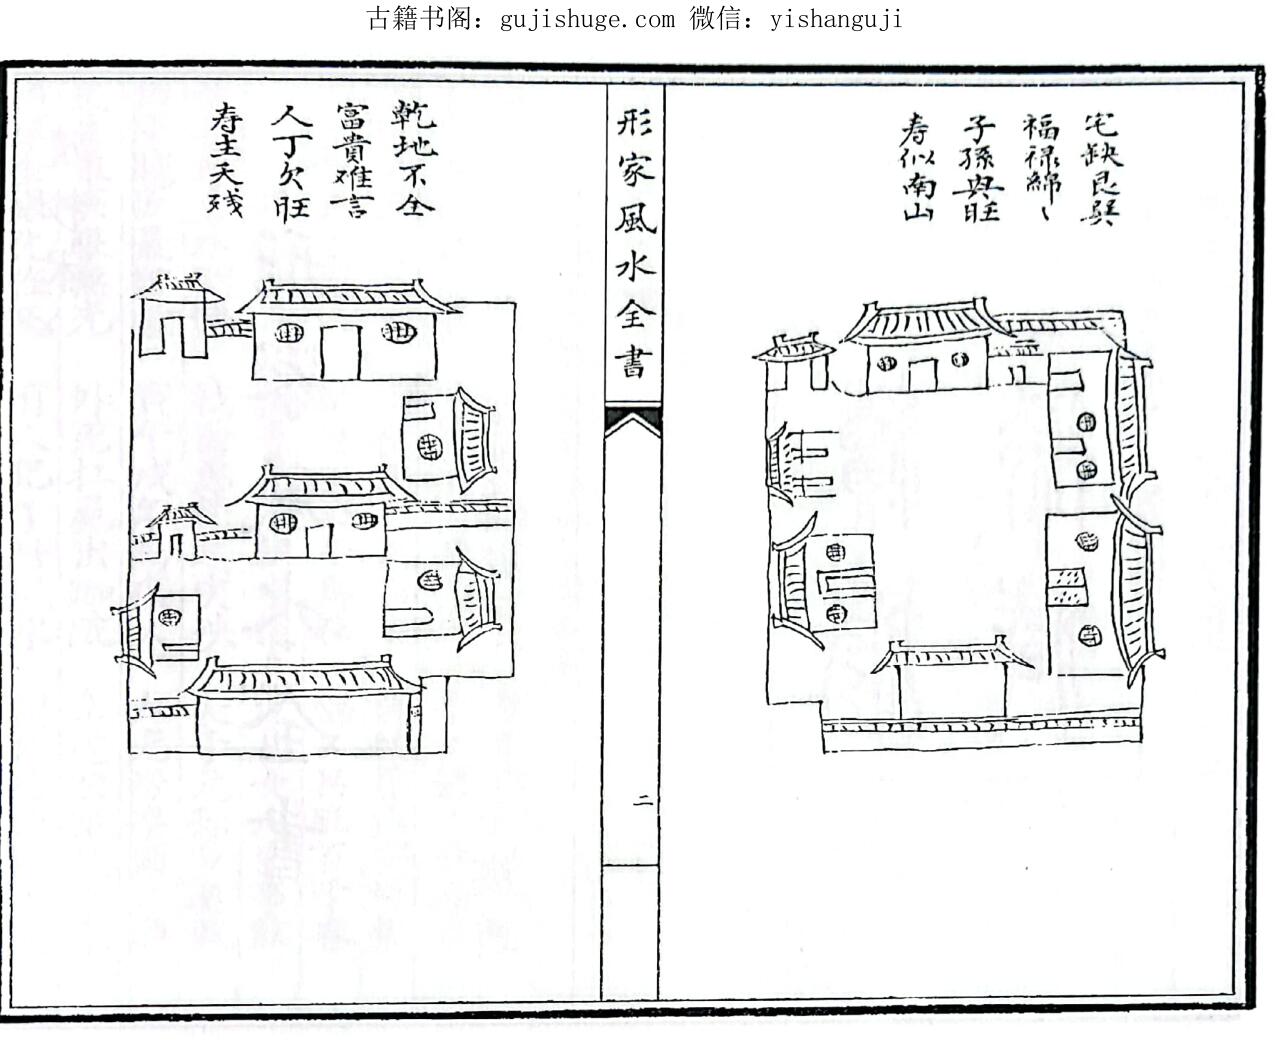 古籍书阁：gujishuge.com 微信：yishanguji
宅缺艮巽
福禄綿〻
子孫興旺
寿似南山
形家風水全書
二
乾地不全
富貴难言
人丁欠旺
寿主夭残